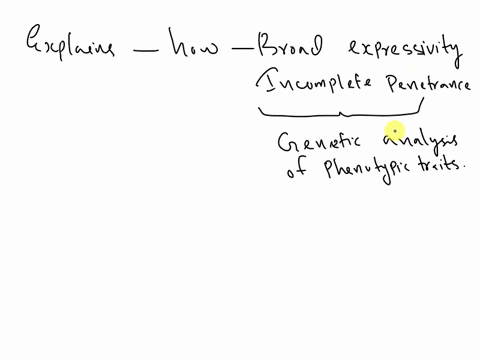 Explains — how — Broad expressivity
Incomplete Penetrance
Genetic analysis
of Phenotypic traits.